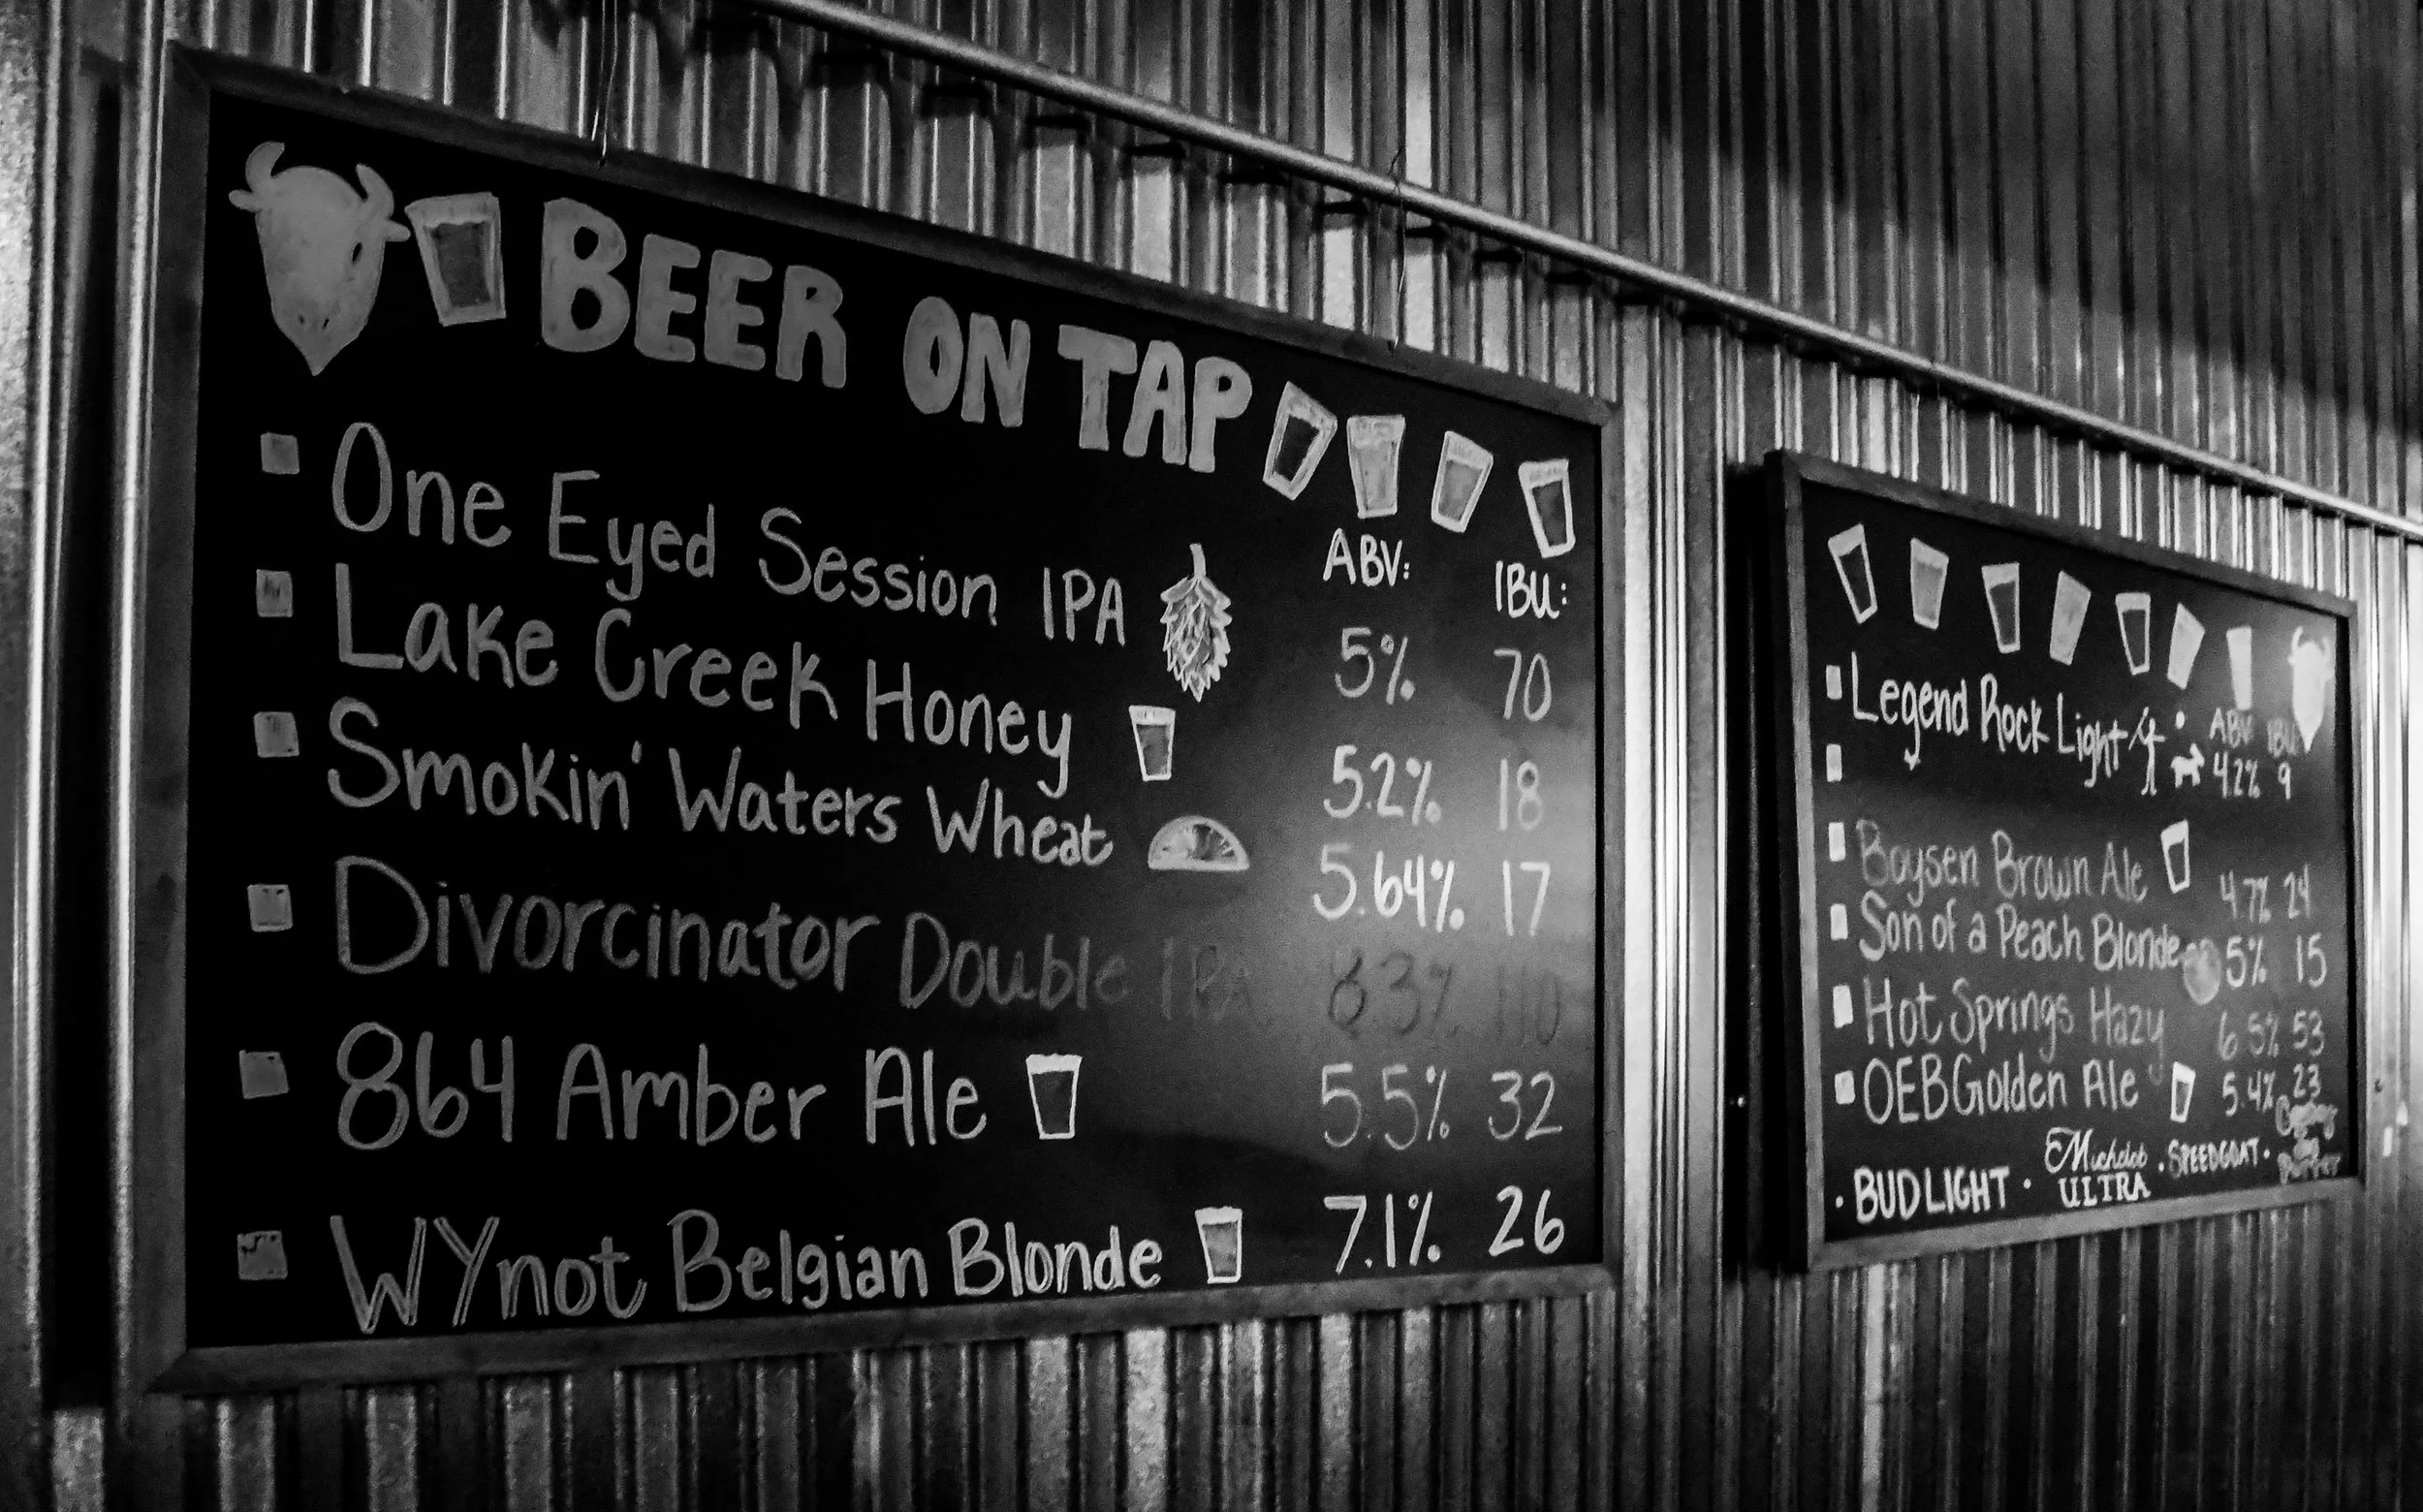 BEER ON TAP
ABV: IBU:
One Eyed Session IPA 5% 70
Lake Creek Honey 5.2% 18
Smokin' Waters Wheat 5.64% 17
Divorcinator Double IPA 8.3% 110
864 Amber Ale 5.5% 32
WYnot Belgian Blonde 7.1% 26
ABV IBU
Legend Rock Light 4.2% 9
Boysen Brown Ale 4.7% 24
Son of a Peach Blonde 5% 15
Hot Springs Hazy 6.5% 53
OEB Golden Ale 5.4% 23
• BUD LIGHT • Michelob ULTRA • SPEEDGOAT •